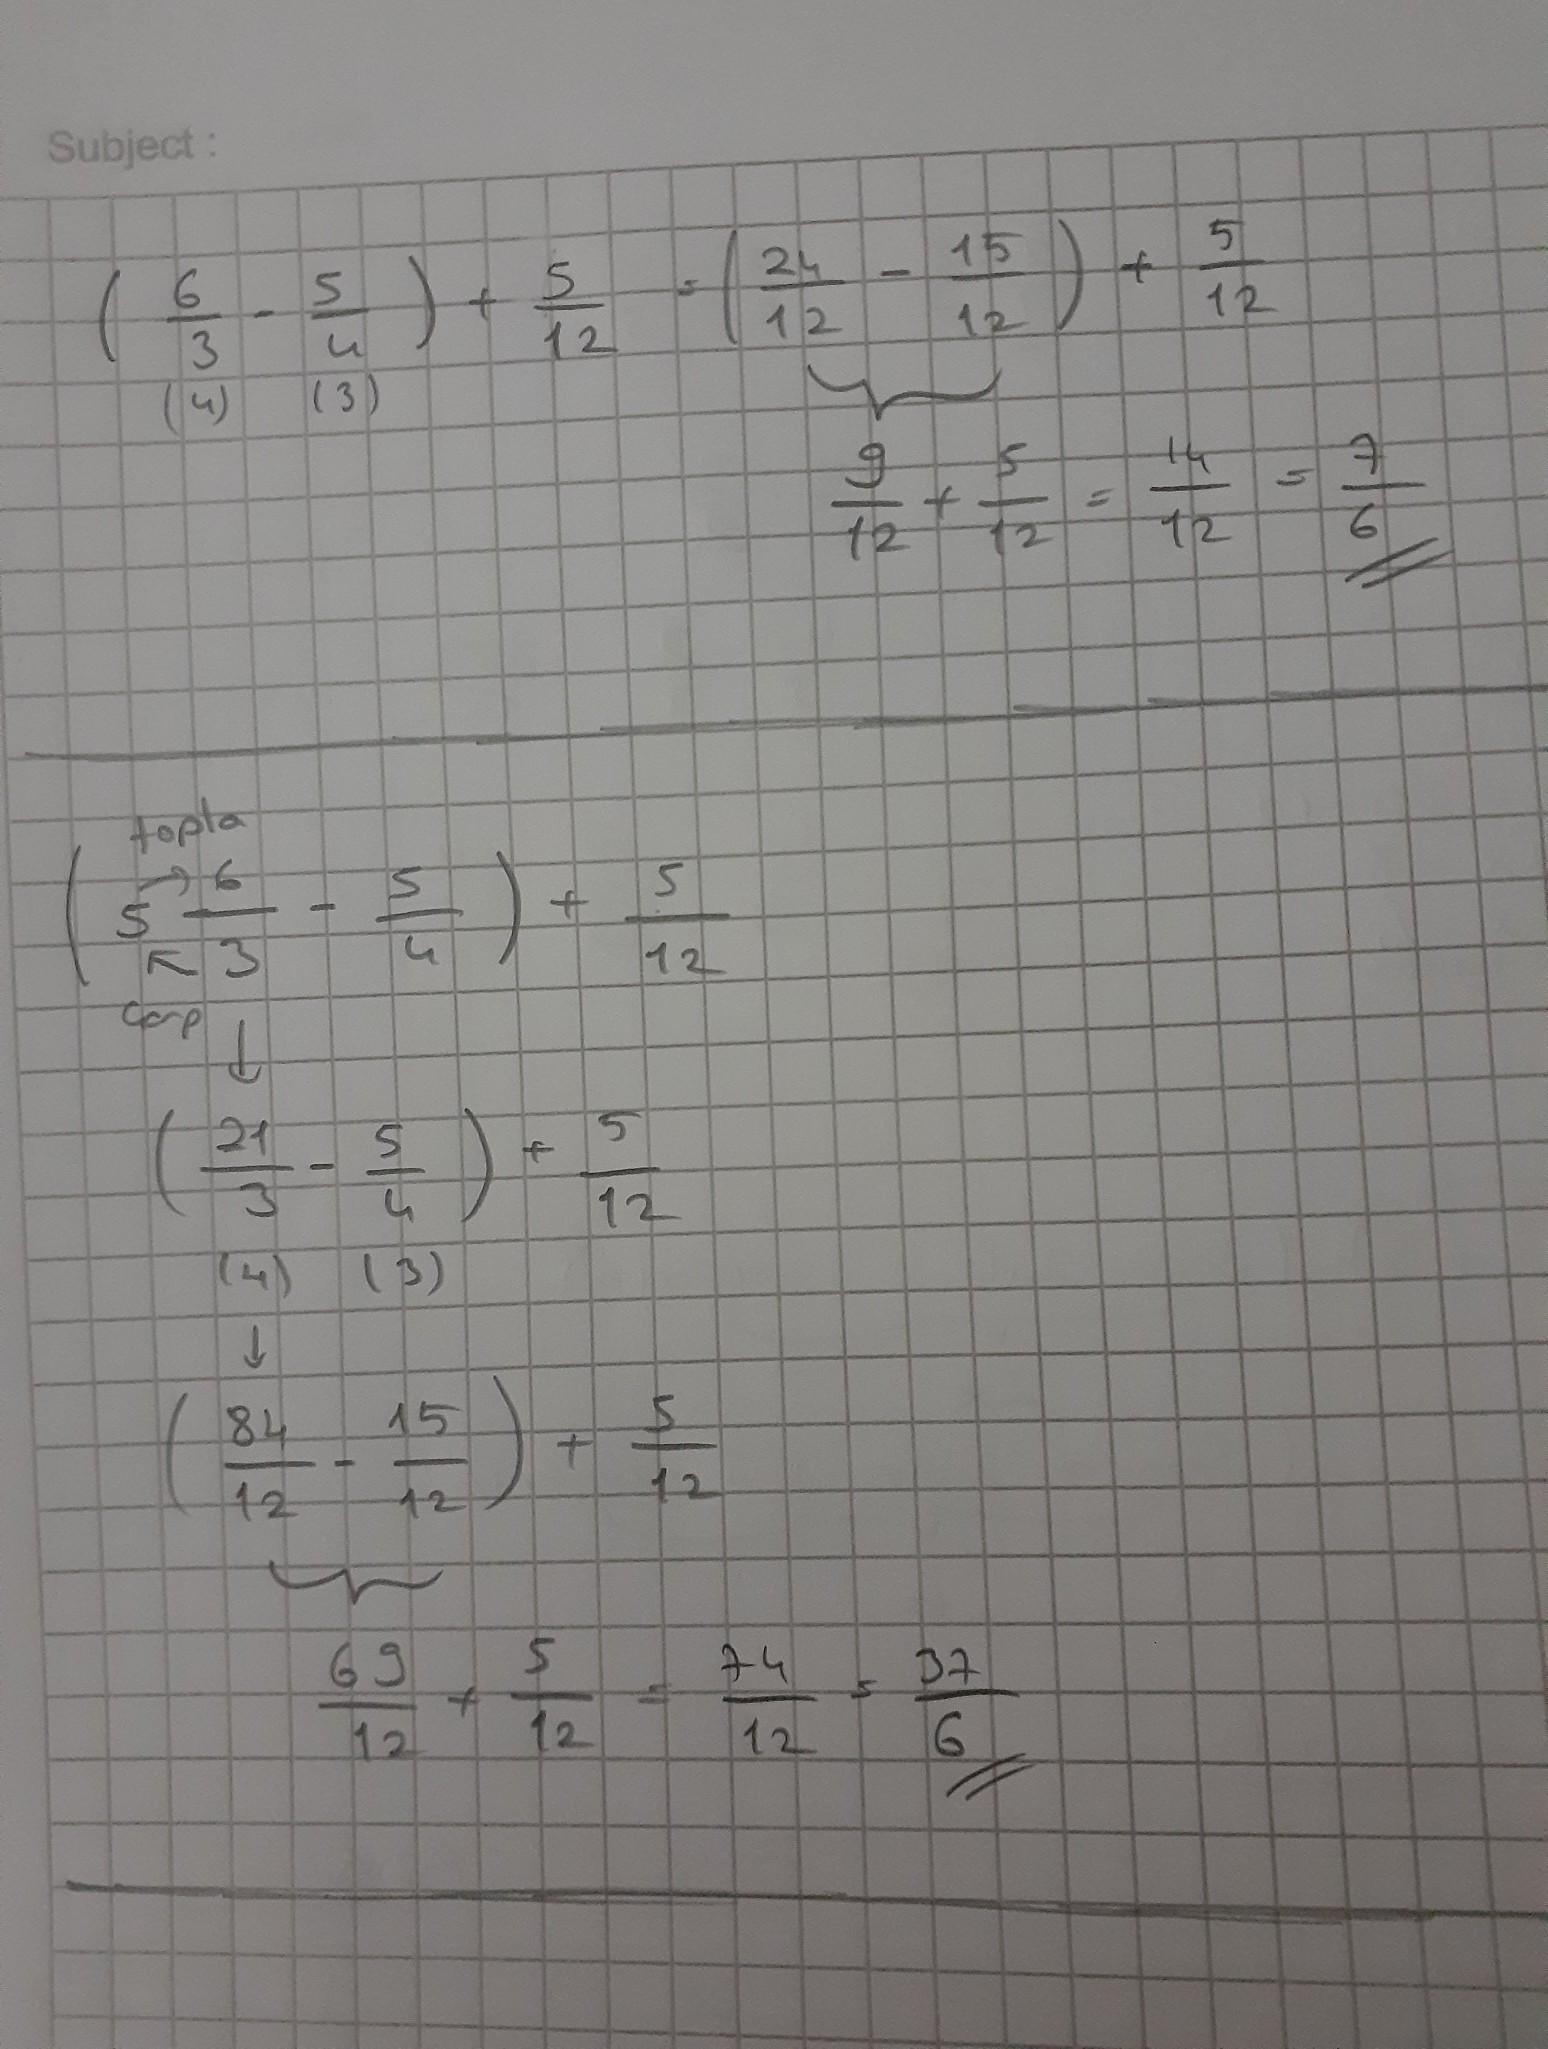 Subject :
( 6/3 - 5/4 ) + 5/12 = ( 24/12 - 15/12 ) + 5/12
(4) (3)
9/12 + 5/12 = 14/12 = 7/6
topla
( 5 6/3 - 5/4 ) + 5/12
Çarp ↓
( 21/3 - 5/4 ) + 5/12
(4) (3)
↓
( 84/12 - 15/12 ) + 5/12
69/12 + 5/12 = 74/12 = 37/6